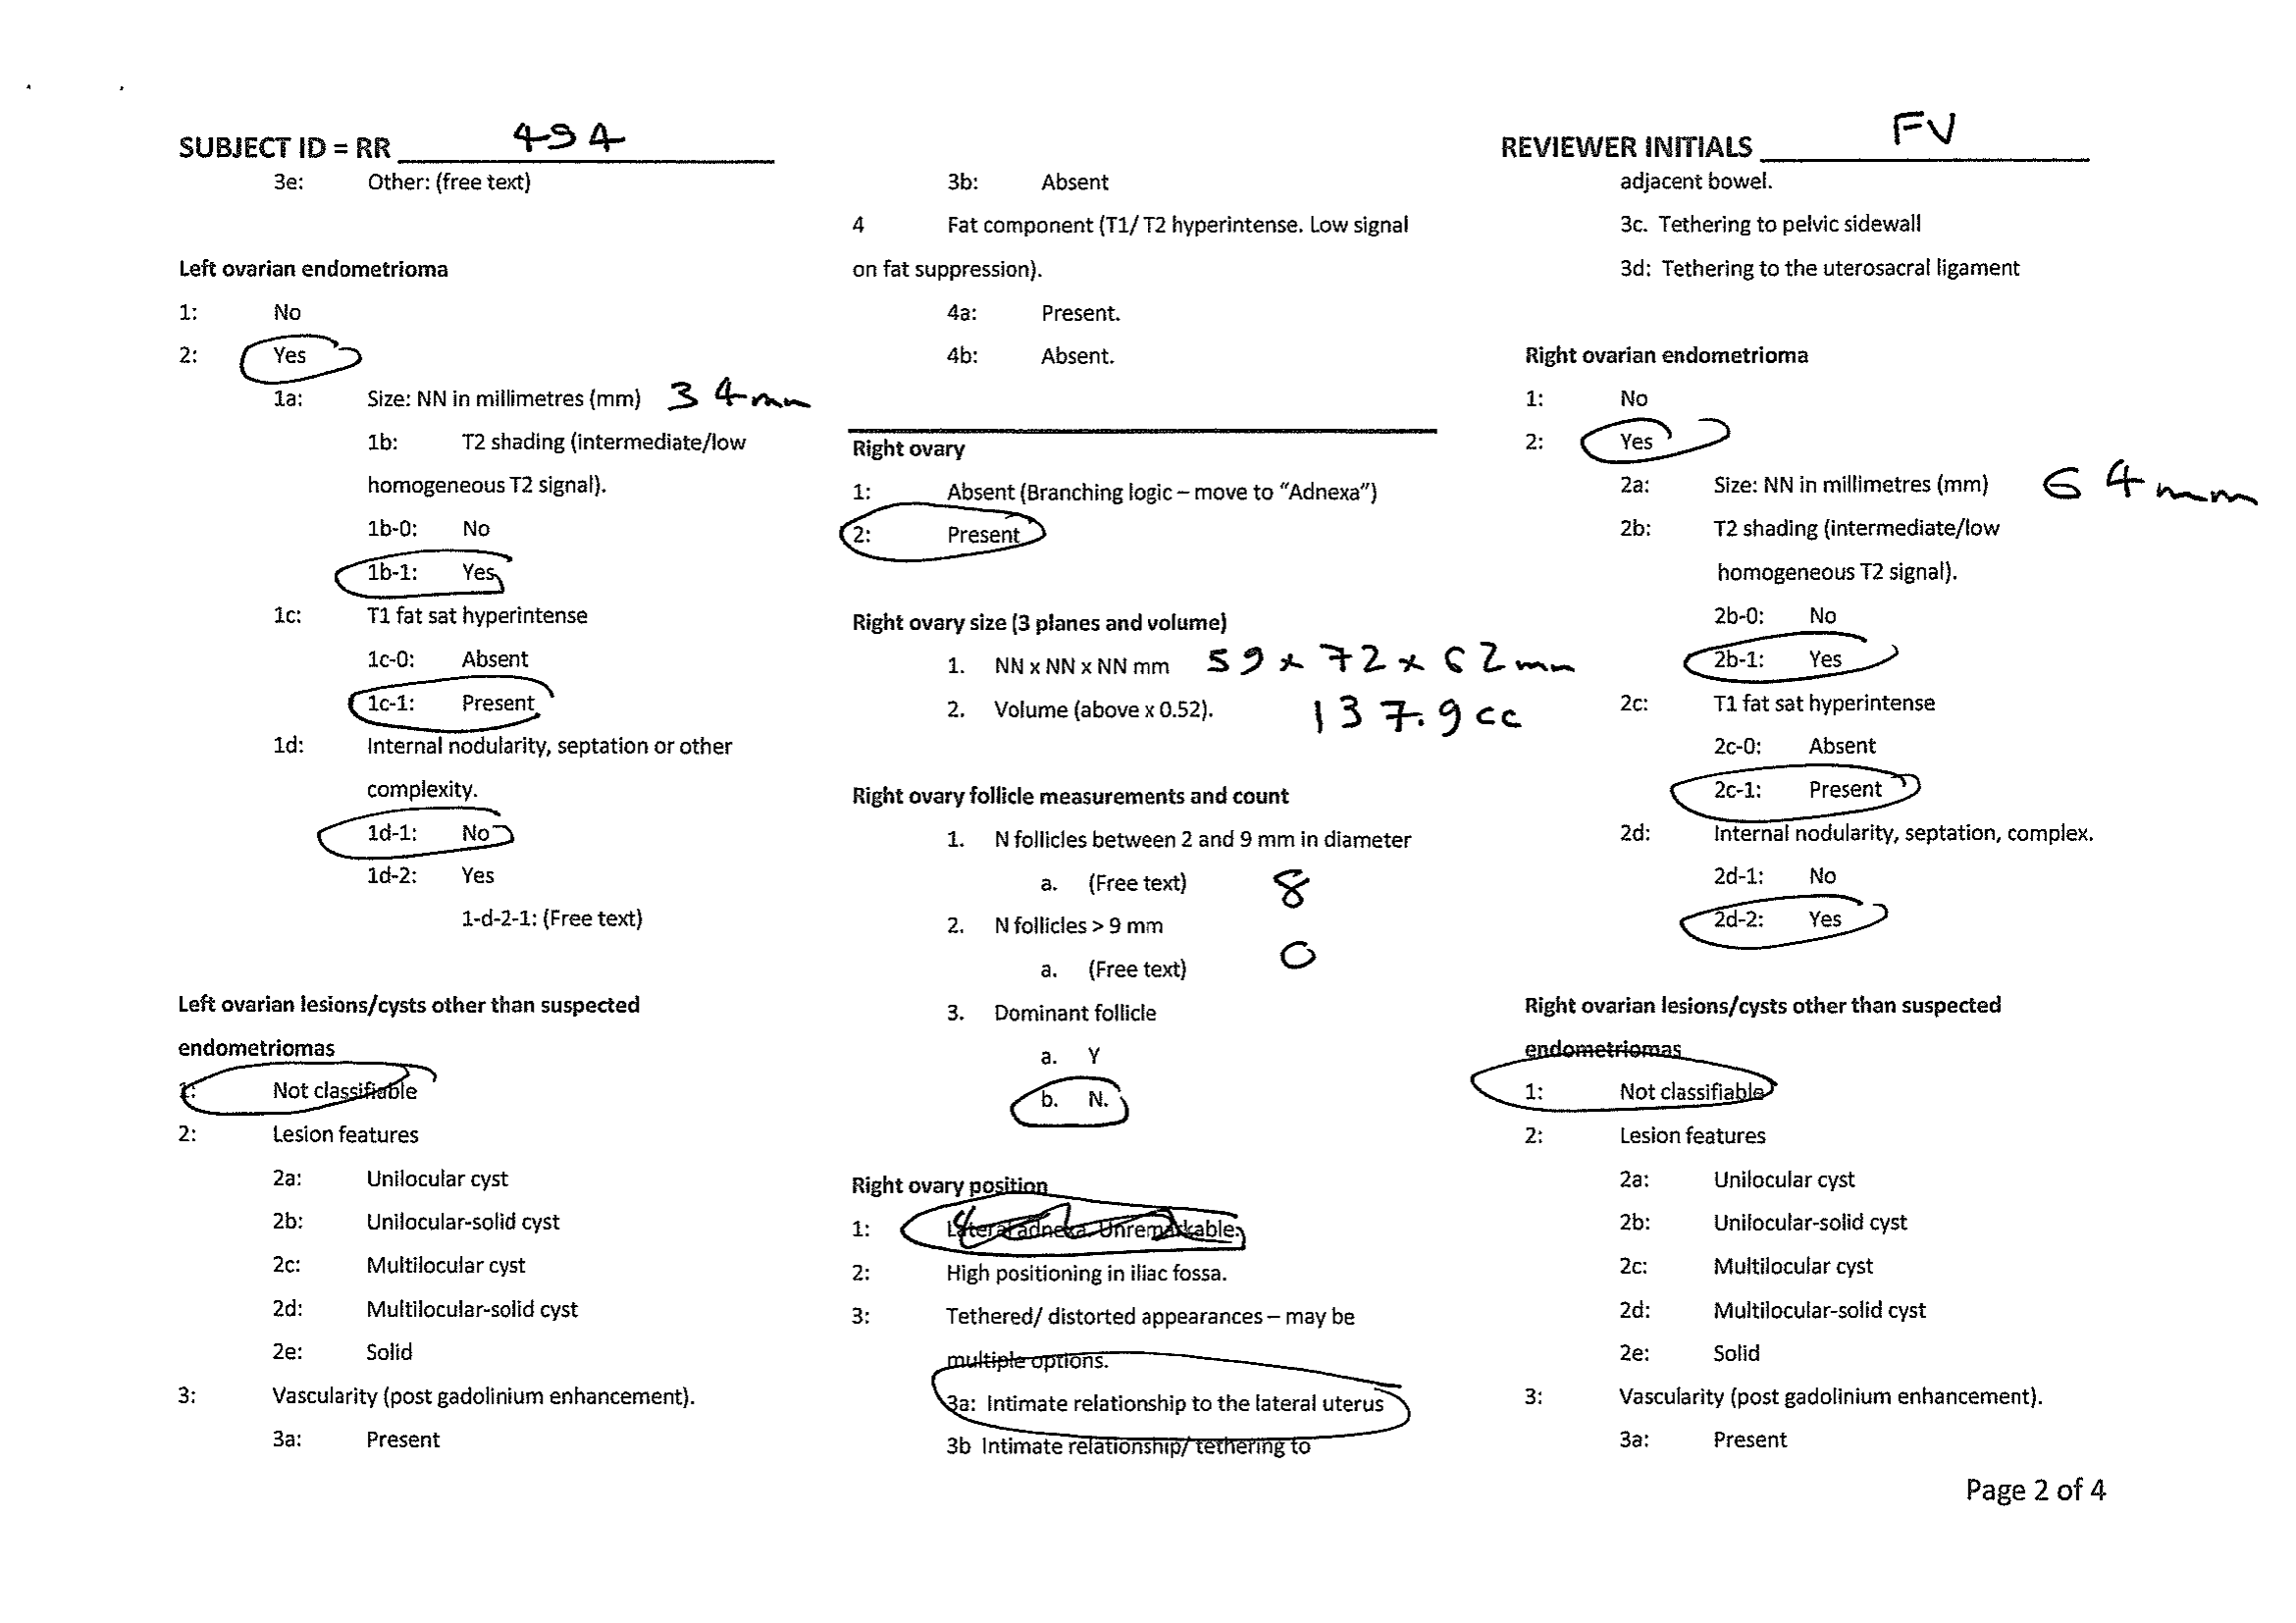 SUBJECT ID = RR 494
REVIEWER INITIALS FV
3e: Other: (free text)
Left ovarian endometrioma
1: No
2: Yes
1a: Size: NN in millimetres (mm) 34mm
1b: T2 shading (intermediate/low
homogeneous T2 signal).
1b-0: No
1b-1: Yes
1c: T1 fat sat hyperintense
1c-0: Absent
1c-1: Present
1d: Internal nodularity, septation or other
complexity.
1d-1: No
1d-2: Yes
1-d-2-1: (Free text)
Left ovarian lesions/cysts other than suspected
endometriomas
1: Not classifiable
2: Lesion features
2a: Unilocular cyst
2b: Unilocular-solid cyst
2c: Multilocular cyst
2d: Multilocular-solid cyst
2e: Solid
3: Vascularity (post gadolinium enhancement).
3a: Present
3b: Absent
4 Fat component (T1/ T2 hyperintense. Low signal
on fat suppression).
4a: Present.
4b: Absent.
Right ovary
1: Absent (Branching logic – move to “Adnexa”)
2: Present
Right ovary size (3 planes and volume)
1. NN x NN x NN mm 59 x 72 x 62mm
2. Volume (above x 0.52). 137.9cc
Right ovary follicle measurements and count
1. N follicles between 2 and 9 mm in diameter
a. (Free text) 8
2. N follicles > 9 mm
a. (Free text) 0
3. Dominant follicle
a. Y
b. N.
Right ovary position
1: Lateral adnexa. Unremarkable.
2: High positioning in iliac fossa.
3: Tethered/ distorted appearances – may be
multiple options.
3a: Intimate relationship to the lateral uterus
3b Intimate relationship/ tethering to
adjacent bowel.
3c. Tethering to pelvic sidewall
3d: Tethering to the uterosacral ligament
Right ovarian endometrioma
1: No
2: Yes
2a: Size: NN in millimetres (mm) 64mm
2b: T2 shading (intermediate/low
homogeneous T2 signal).
2b-0: No
2b-1: Yes
2c: T1 fat sat hyperintense
2c-0: Absent
2c-1: Present
2d: Internal nodularity, septation, complex.
2d-1: No
2d-2: Yes
Right ovarian lesions/cysts other than suspected
endometriomas
1: Not classifiable
2: Lesion features
2a: Unilocular cyst
2b: Unilocular-solid cyst
2c: Multilocular cyst
2d: Multilocular-solid cyst
2e: Solid
3: Vascularity (post gadolinium enhancement).
3a: Present
Page 2 of 4